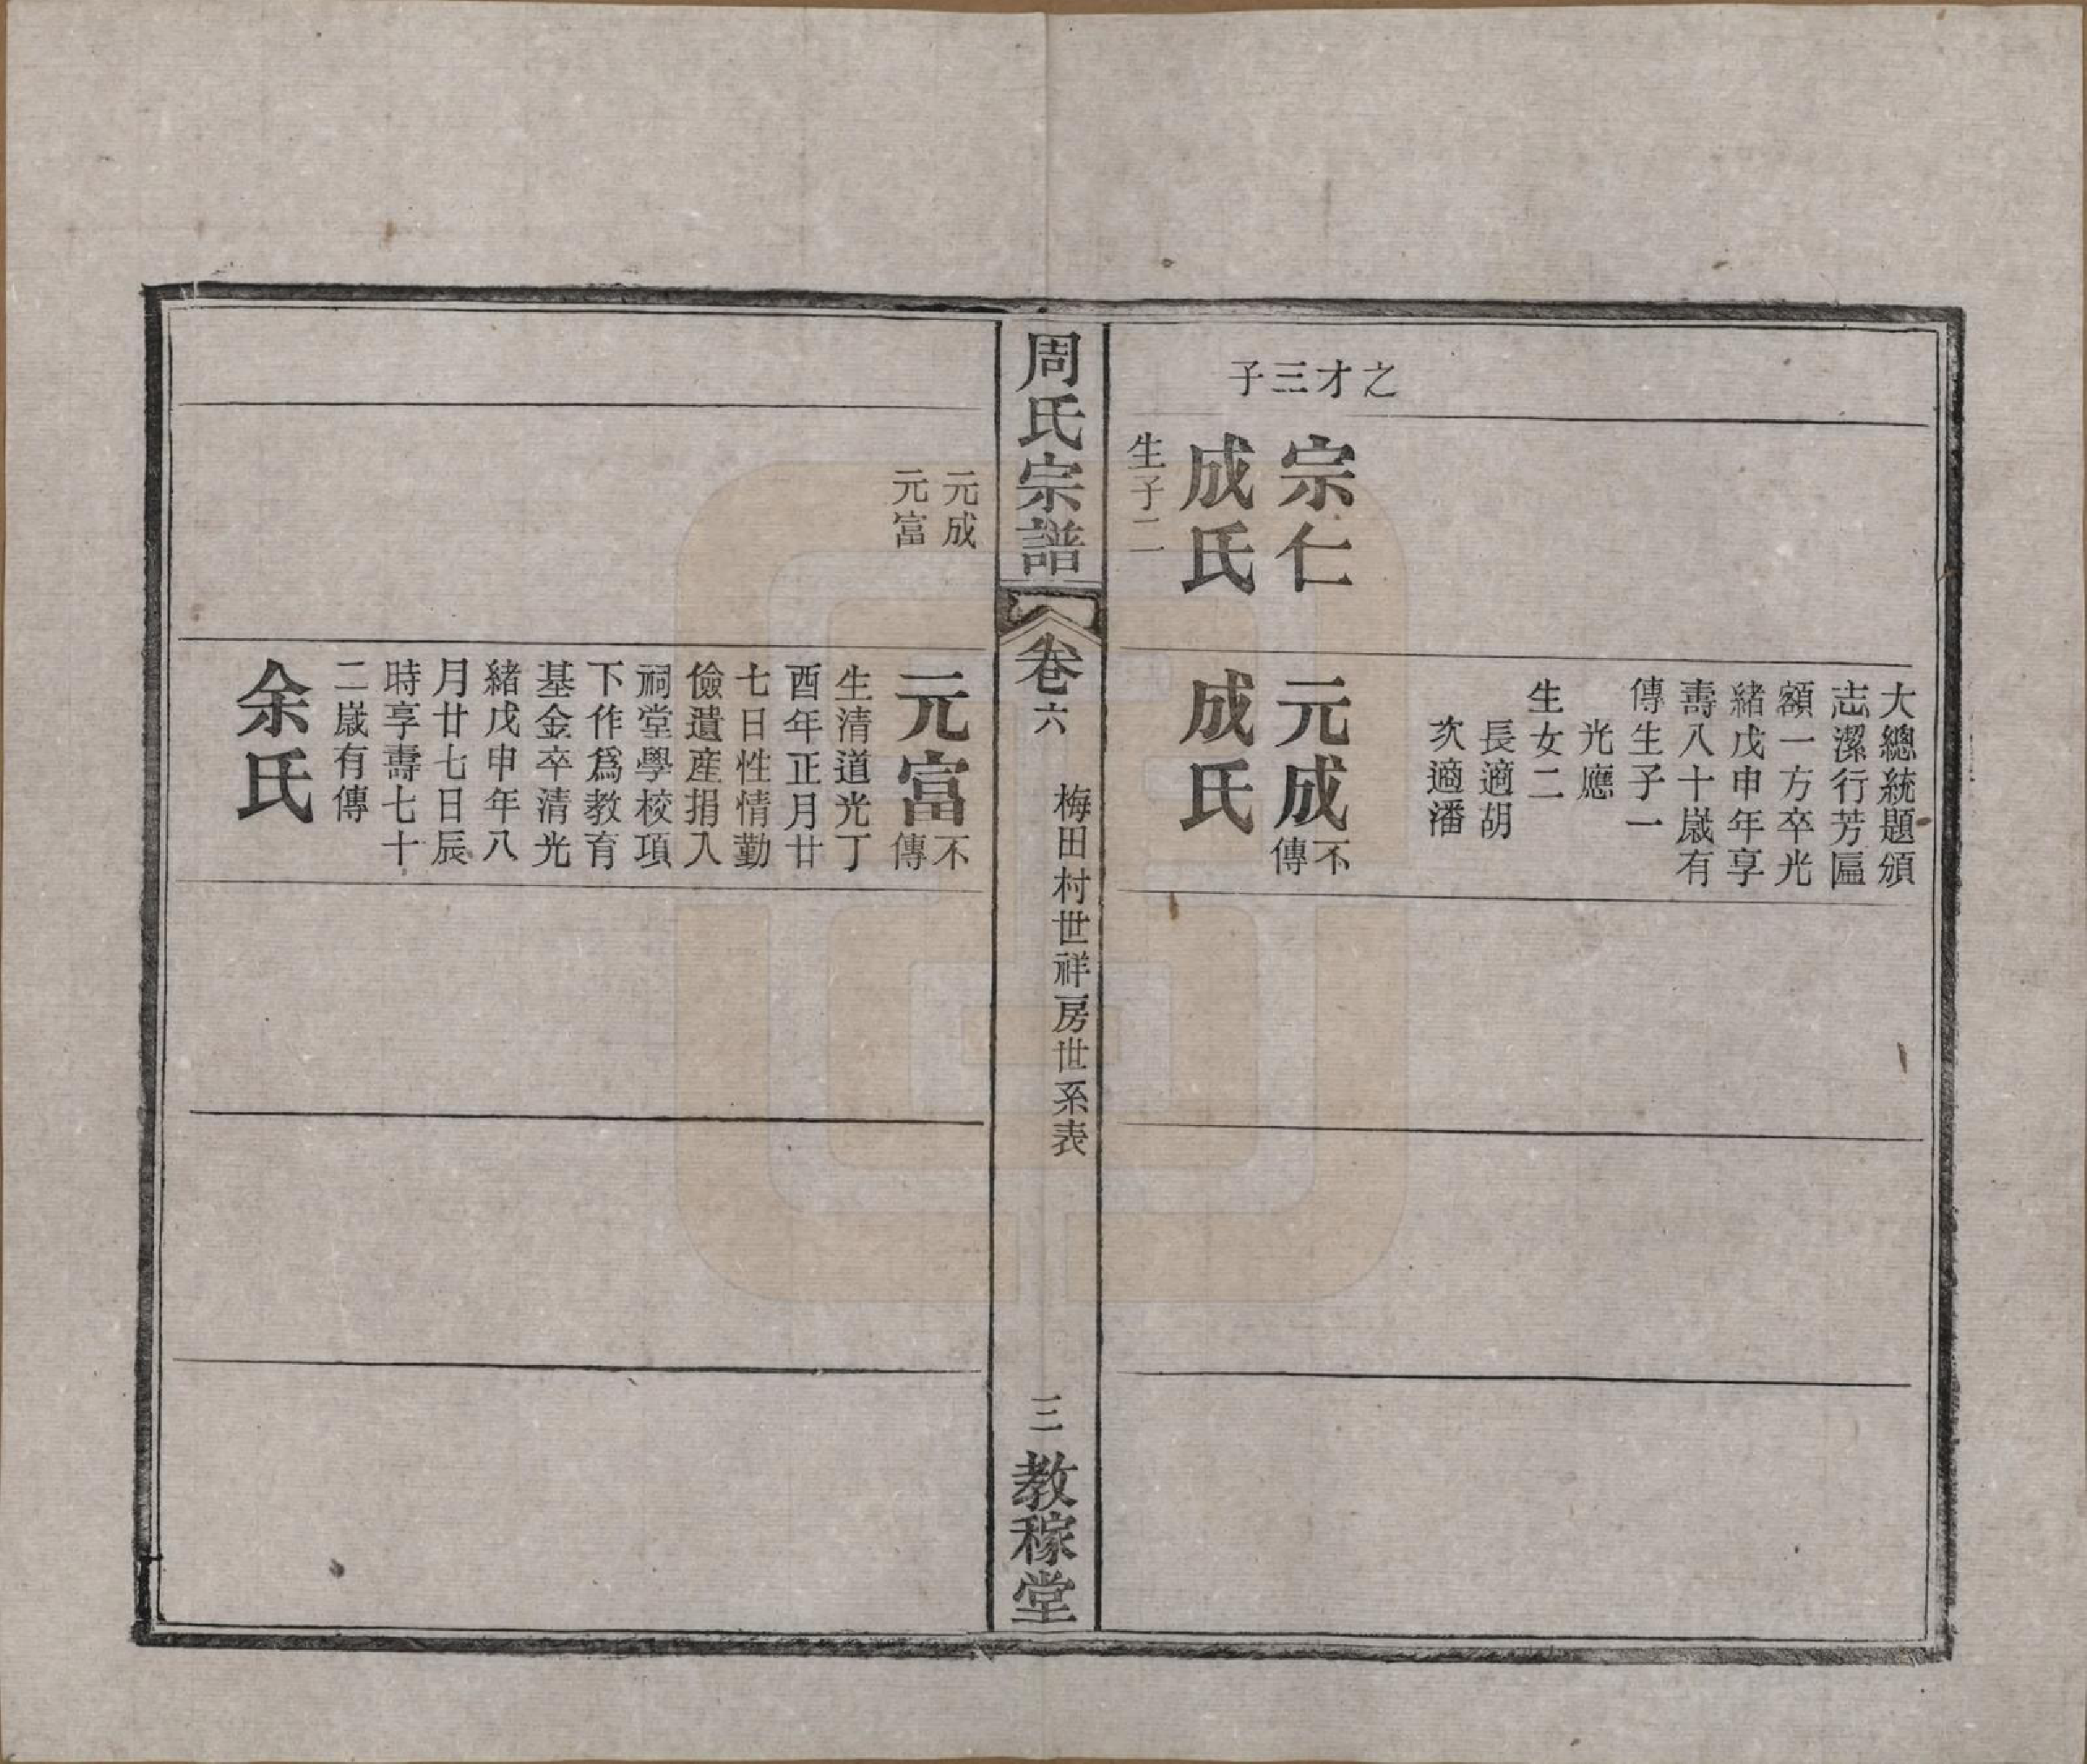 之才三子
宗仁
成氏
生子二
大總統題頒
志潔行芳匾
額一方卒光
緒戊申年享
壽八十歲有
傳生子一
光應
生女二
長適胡
次適潘
元成不傳
成氏
周氏宗譜
卷六
梅田村世祥房世系表
三
教稼堂
元成
元富
元富不傳
生清道光丁
酉年正月廿
七日性情勤
儉遺産捐入
祠堂學校項
下作爲教育
基金卒清光
緒戊申年八
月廿七日辰
時享壽七十
二歲有傳
余氏